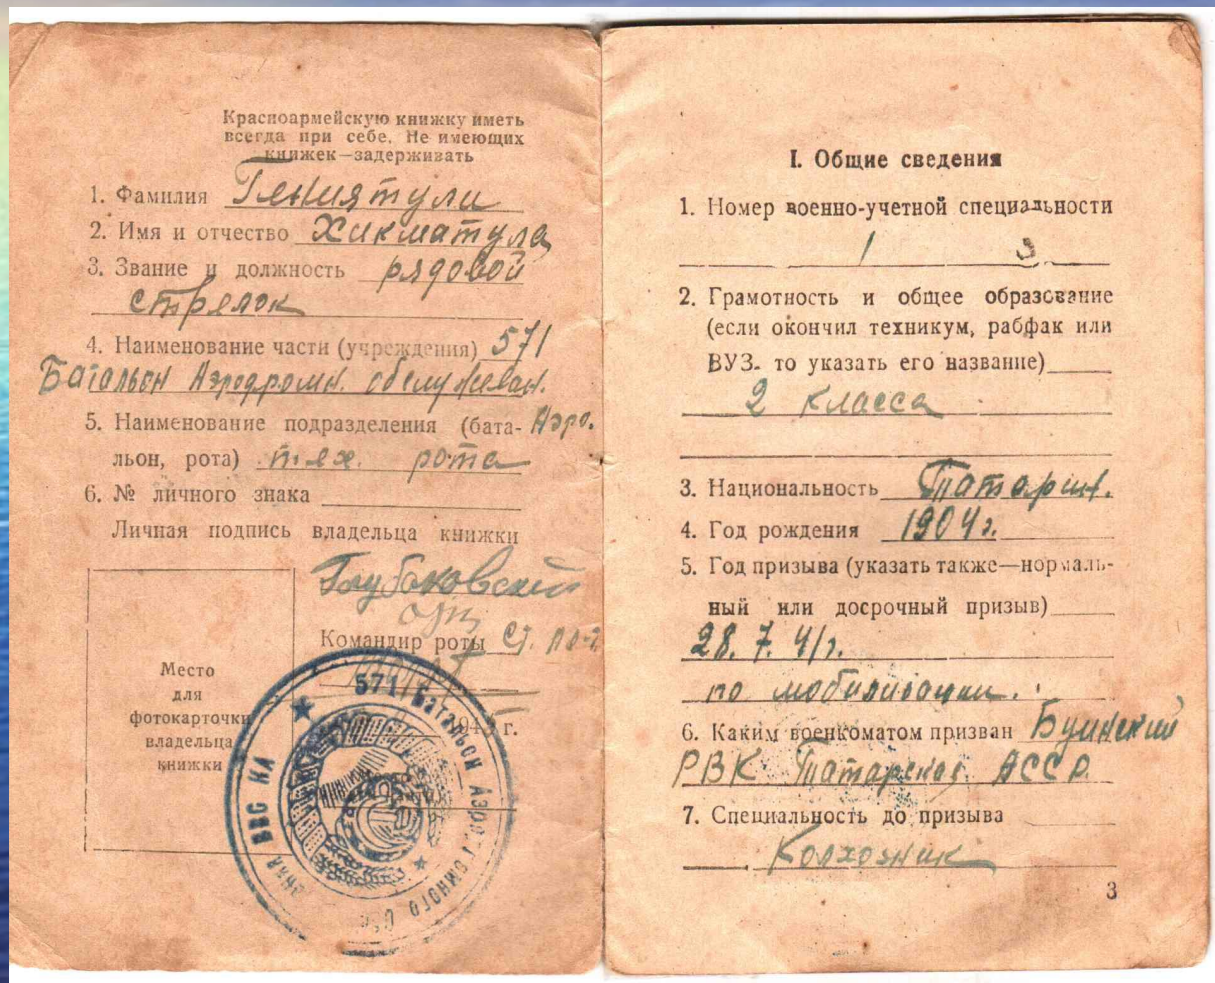 Красноармейскую книжку иметь
всегда при себе. Не имеющих
книжек—задерживать
1. Фамилия Гениятули
2. Имя и отчество Хикматула
3. Звание и должность рядовой
стрелок
4. Наименование части (учреждения) 571
Батальон Аэродромн. обслуживан.
5. Наименование подразделения (бата- Аэро.
льон, рота) тех. рота
6. № личного знака
Личная подпись владельца книжки
Командир роты Ст. л-т
194 г.
Место
для
фотокарточки
владельца
книжки
571 Батальон Аэродромного ВВС КА
I. Общие сведения
1. Номер военно-учетной специальности
1 3
2. Грамотность и общее образование
(если окончил техникум, рабфак или
ВУЗ. то указать его название)
2 класса
3. Национальность Татарин.
4. Год рождения 1904 г.
5. Год призыва (указать также—нормаль-
ный или досрочный призыв)
28. 7. 41 г.
по мобилизации.
6. Каким военкоматом призван Буинский
РВК Татарской АССР.
7. Специальность до призыва
Колхозник
3